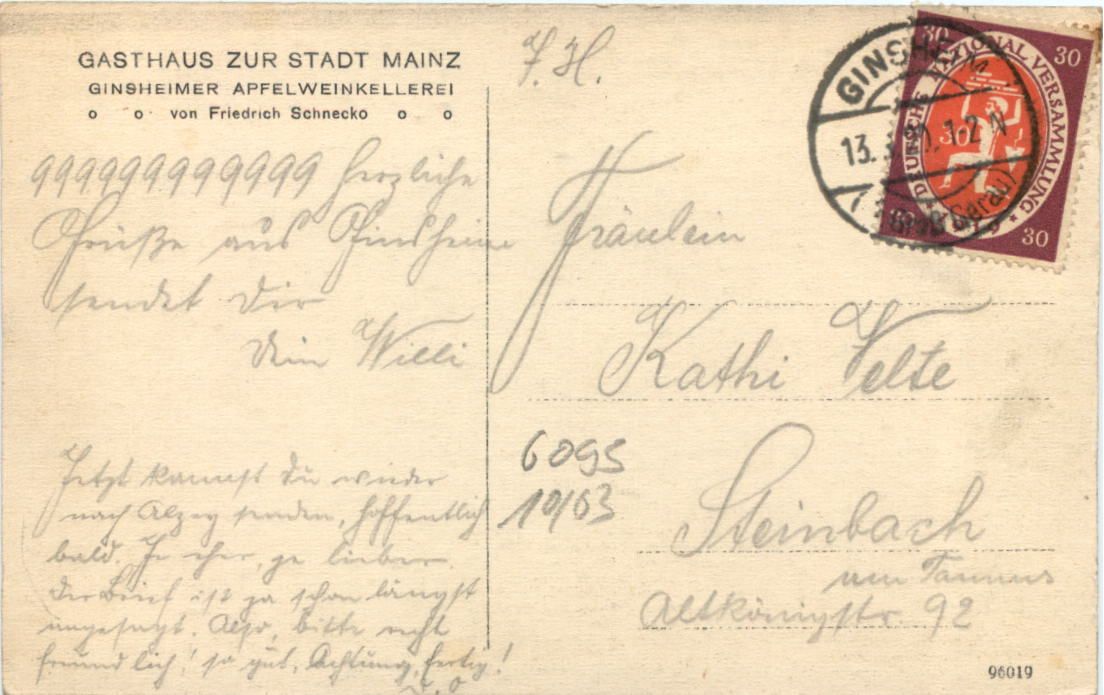 GASTHAUS ZUR STADT MAINZ
GINSHEIMER APFELWEINKELLEREI
o o von Friedrich Schnecko o o
F. H.
30 30
DEUTSCHE NATIONAL VERSAMMLUNG
30
30 30
GINSHEIM
13. 20. 1-2 N
Gerau)
999999999999 Herzliche
Grüße aus Ginsheim
sendet Dir
Dein Willi
Fräulein
Kathi Velte
Steinbach
am Taunus
Altkönigstr. 92
6095
10/63
Jetzt kannst Du wieder
nach Alzey senden, hoffentlich
bald. Je eher, je lieber.
Der Brief ist ja schon längst
angesagt. Also, bitte recht
freundlich! so gut, Achtung, fertig!
96019